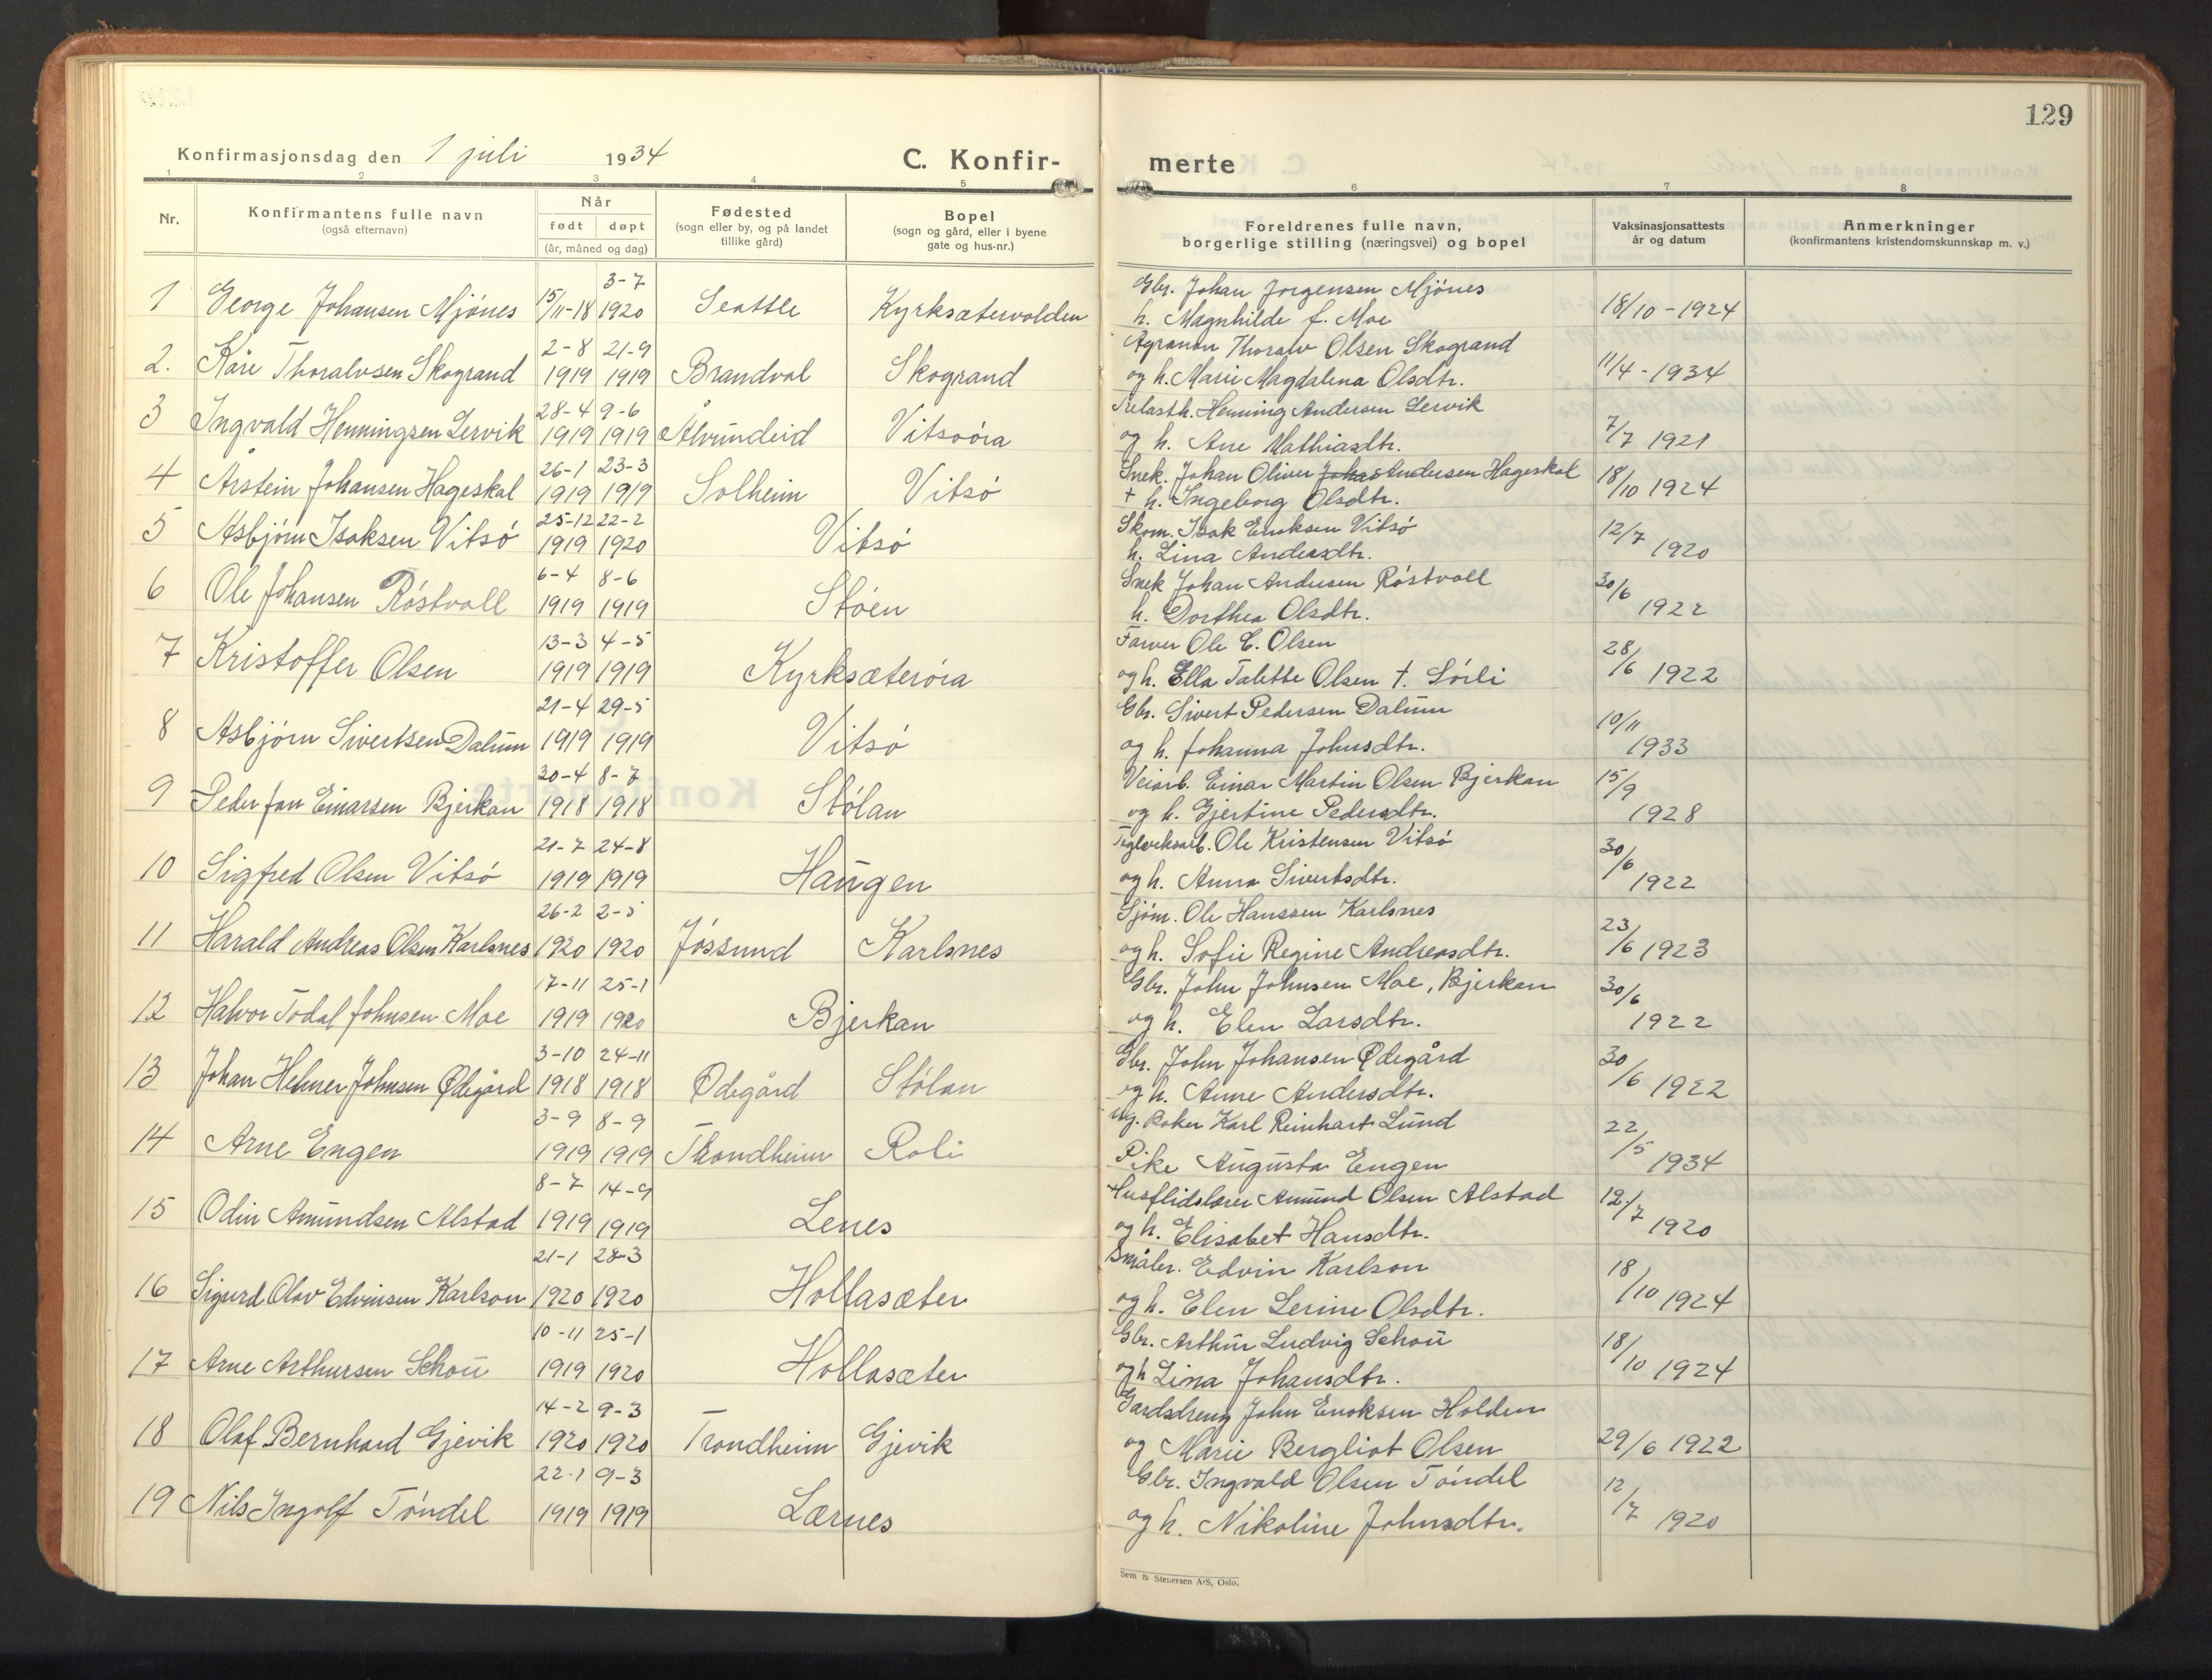 129
Konfirmasjonsdag den 1 juli 1934 C. Konfir- merte
1 2 3 4 5 6 7 8
Nr. Konfirmantens fulle navn (også efternavn) Når født døpt (år, måned og dag) Fødested (sogn eller by, og på landet tillike gård) Bopel (sogn og gård, eller i byene gate og hus-nr.) Foreldrenes fulle navn, borgerlige stilling (næringsvei) og bopel Vaksinasjonsattests år og datum Anmerkninger (konfirmantens kristendomskunnskap m. v.)
1 George Johansen Mjönes 15/11-18 3-7 1920 Seattle Kyrksætervolden Gbr. Johan Jorgensen Mjönes
h. Magnhilde f. Moe 18/10-1924
2. Kåre Thoralvsen Skogrand 2-8 1919 21-9 1919 Brandval Skogrand Agronon Thoralv Olsen Skogrand
og h. Marie Magdalena Olsdtr. 11/4-1934
3 Ingvald Henningsen Lervik 28-4 1919 9-6 1919 Ålvundeid Vitsoöra Henning Andersen Lervik
og h. Ane Mathiasdtr. 7/7 1921
4 Arstein Johansen Hageskal 26-1 1919 23-3 1919 Solheim Vitsö Snek. Johan Oliver Johas Andersen Hageskal
+ h. Ingeborg Olsdtr. 18/10 1924
5 Asbjörn Isaksen Vitsö 25-12 1919 22-2 1920 Vitsö Skom. Isak Enoksen Vitsö
h. Lina Andersdtr. 12/7 1920
6 Ole Johansen Röstvoll 6-4 1919 8-6 1919 Stöen Snek Johan Andersen Röstvoll
h. Dorthea Olsdtr. 30/6 1922
7 Kristoffer Olsen 13-3 1919 4-5 1919 Kyrksæteröra Farver Ole C. Olsen
og h. Ella Talette Olsen f. Sörli 28/6 1922
8 Asbjörn Sivertsen Dalum 21-4 1919 29-5 1919 Vitsö Gbr. Sivert Pedersen Dalum
og h. Johanna Johnsdtr. 10/11 1933
9 Peder Jan Einarsen Bjerkan 30-4 1918 8-7 1918 Stölan Veiarb. Einar Martin Olsen Bjerkan
og h. Gjertine Pedersdtr. 15/9 1928
10 Sigfred Olsen Vitsö 21-7 1919 24-8 1919 Haugen Teglverksarb. Ole Kristensen Vitsö
og h. Anna Sivertsdtr. 30/6 1922
11 Harald Andreas Olsen Karlsnes 26-2 1920 2-5 1920 Jössund Karlsnes Sjöm. Ole Hanssen Karlsnes
og h. Sofie Regine Andreasdtr. 23/6 1923
12 Halvor Todal Johnsen Moe 17-11 1919 25-1 1920 Bjerkan Gbr. John Johnsen Moe, Bjerkan
og h. Elen Larsdtr. 30/6 1922
13 Johan Helmer Johnsen Ødegård 3-10 1918 24-11 1918 Ødegård Stölan Gbr. John Johansen Ødegård
og h. Anne Andersdtr. 30/6 1922
14 Arne Engen 3-9 1919 8-9 1919 Trondheim Roli Ug. Baker Karl Reinhart Lund
Pike Augusta Engen 22/5 1934
15 Odin Amundsen Alstad 8-7 1919 14-9 1919 Lenes Husflidslærer Amund Olsen Alstad
og h. Elisabet Hansdtr. 12/7 1920
16 Sigurd Olav Edvinsen Karlson 21-1 1920 28-3 1920 Hollasæter Småbr. Edvin Karlson
og h. Elen Lerine Olsdtr. 18/10 1924
17 Arne Arthursen Schou 10-11 1919 25-1 1920 Hollasæter Gbr. Arthur Ludvig Schou
og h Lina Johansdtr. 18/10 1924
18 Olaf Bernhard Gjevik 14-2 1920 9-3 1920 Trondheim Gjevik Gardsdreng John Enoksen Holden
og Marie Bergliot Olsen 29/6 1922
19 Nils Ingolf Töndel 22-1 1919 9-3 1919 Lærnes Gbr. Ingvald Olsen Töndel
og h. Nikoline Johnsdtr. 12/7 1920
Sem & Stenersen A/S, Oslo.